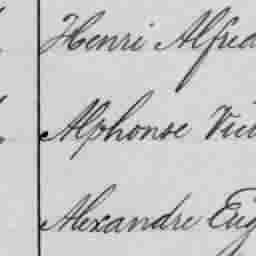 Henri Alfred
Alphonse Vic
Alexandre Eug